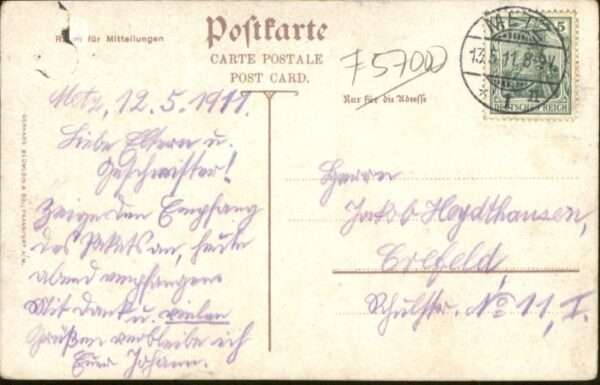 Postkarte
Raum für Mitteilungen
CARTE POSTALE
POST CARD.
Nur für die Adresse
F 57000
METZ
13.5.11. 8-9V.
* 1 n
5
DEUTSCHES REICH
Metz, 12.5.1911.
Liebe Eltern u.
Geschwister!
Zeige den Empfang
des Pakets an, heute
abend empfangen.
Mit Dank u. vielen
Grüßen verbleibe ich
Euer Johann.
Herrn
Jakob Heydthausen,
Crefeld,
Schulstr. No 11, I.